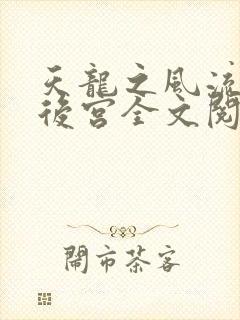 天龍之風流
後宮全文閱
鬧市茶客